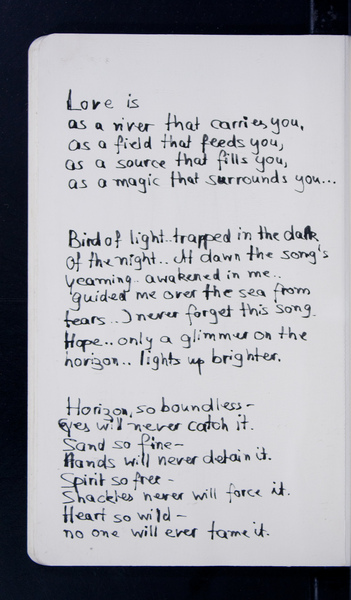 Love is
as a river that carries you,
as a field that feeds you,
as a source that fills you,
as a magic that surrounds you...
Bird of light..trapped in the dark
of the night.. At dawn the song's
yearning.. awakened in me..
guided me over the sea from
tears.. I never forget this song.
Hope.. only a glimmer on the
horizon.. lights up brighter.
Horizon, so boundless-
Eyes will never catch it.
Sand so fine-
Hands will never detain it.
Spirit so free-
Shackles never will force it.
Heart so wild-
no one will ever tame it.